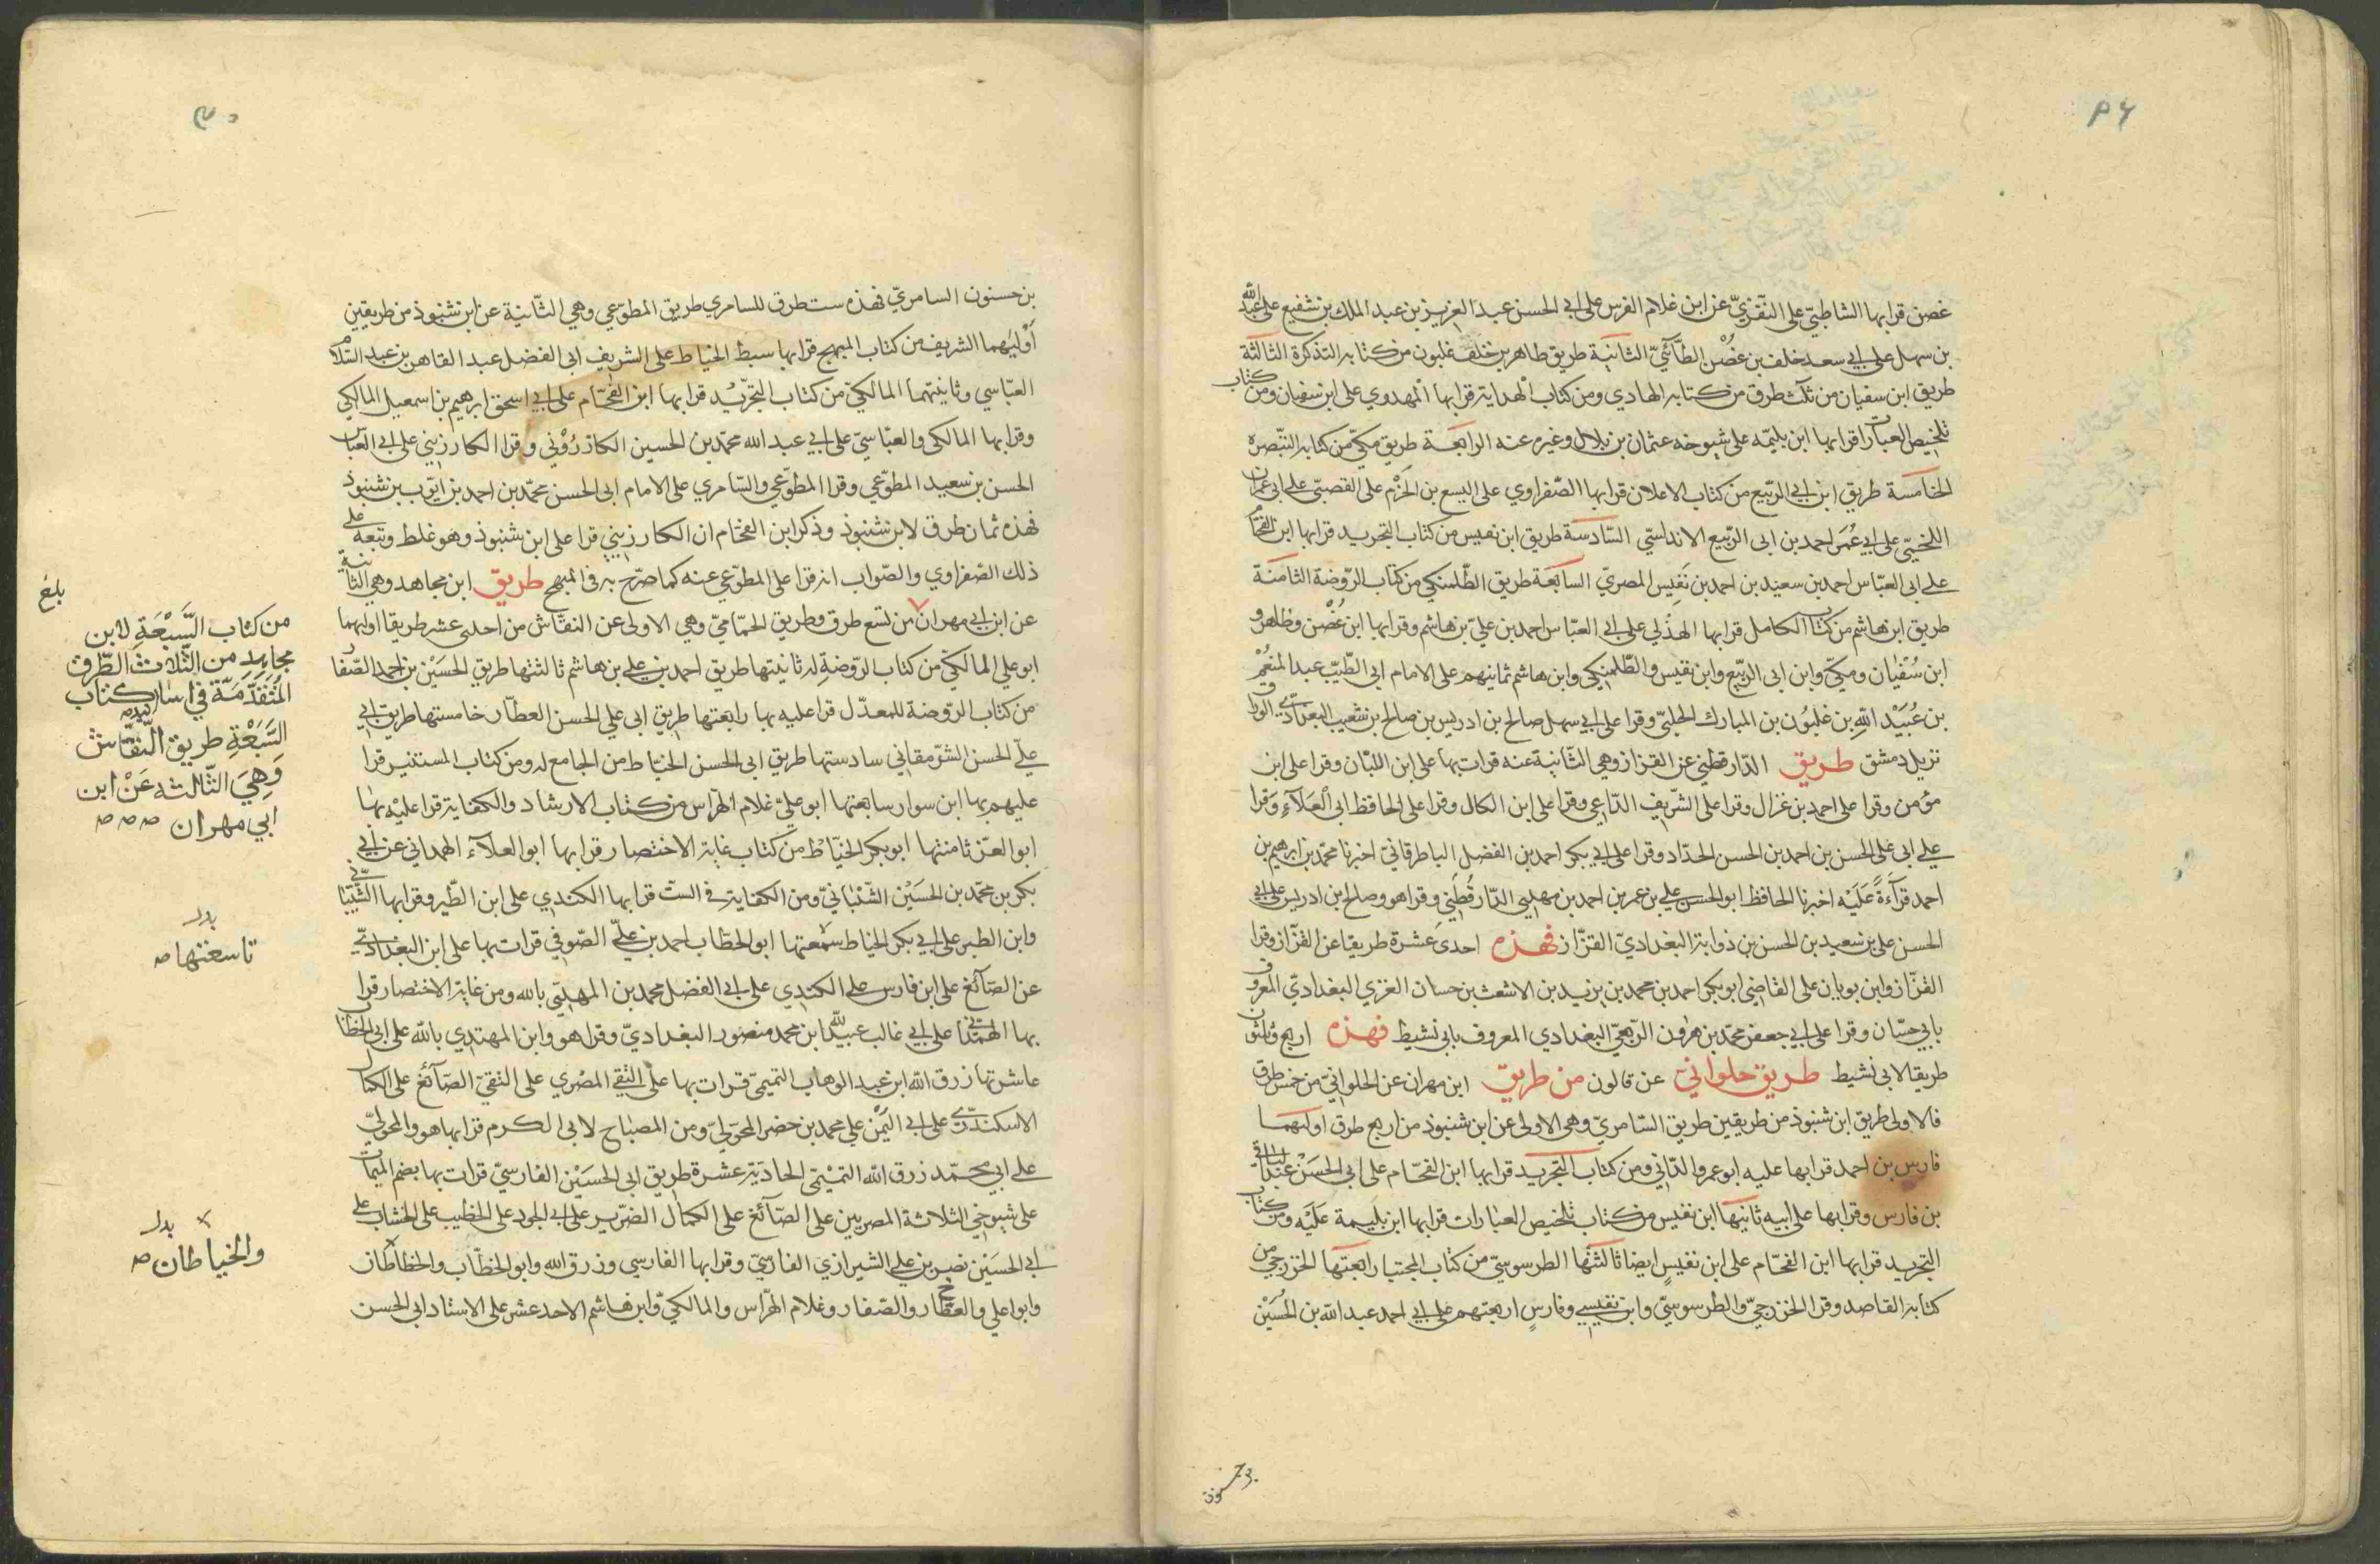 ٣٤
غصن قرا بها الشاطبي على النفزي عن ابن غلام الفرس على ابى الحسن عبد العزيز بن عبد الملك بن شفيع على عبد الله
بن سهل على ابى سعد خلف بن غصن الطائي الثانية طريق طاهر بن خلف غلبون من كتابه التذكرة الثالثة
طريق ابن سفيان من ثلث طرق من كتابه الهادي ومن كتاب الهداية قرا بها المهدوي على ابن سفيان ومن كتاب
تلخيص العبارات قرا بها ابن بليمه على شيوخه عثمان بن بلال وغيره عنه الرابعة طريق مكي من كتابه التبصره
الخامسة طريق ابن ابي الربيع من كتاب الاعلان قرا بها الصفراوي على اليسع بن الحزم على القصبي على ابى عمران
اللخمي على ابي عمر احمد بن ابى الربيع الاندلسي السادسة طريق ابن نفيس من كتاب التجريد قرا بها ابن الفحام
على ابى العباس احمد بن سعيد بن احمد بن نفيس المصري السابعة طريق الطلمنكي من كتاب الروضة الثامنة
طريق ابن هاشم من كتاب الكامل قرا بها الهذلي على ابى العباس احمد بن علي بن هاشم وقرا بها ابن غصن وطاهر و
ابن سفيان ومكي وابن ابى الربيع وابن نفيس والطلمنكي وابن هاشم ثمانيهم على الامام ابى الطيب عبد المنعم
بن عبيد الله بن غلبون بن المبارك الحلبي وقرا على ابى سهل صالح بن ادريس بن صالح بن شعيب البغدادي الوراق
نزيل دمشق طريق الدارقطني عن القزاز وهي الثانية عنه قرات بها على ابن اللبان وقرا على ابن
مؤمن وقرا على احمد بن غزال وقرا على الشريف الداعي وقرا على ابن الكال وقرا على الحافظ ابى العلاء وقرا
على ابى على الحسن بن احمد بن الحسن الحداد وقرا على ابى بكر احمد بن الفضل الباطرقاني اخبرنا محمد بن ابرهيم بن
احمد قراءة عليه اخبرنا الحافظ ابو الحسن علي بن عمر بن احمد بن مهدي الدارقطني وقرا هو وصالح ابن ادريس على ابى
الحسن على بن سعيد بن الحسن بن ذوابة البغدادي القزاز فهذه احدى عشرة طريقا عن القزاز وقرا
القزاز وابن بويان على القاضي ابو بكر احمد بن محمد بن يزيد بن الاشعث بن حسان العنزي البغدادي المعروف
بابي حسان وقرا على ابى جعفر محمد بن هرون الربعي البغدادي المعروف بابي نشيط فهذه اربع وثلثون
طريقا لابى نشيط طريق حلواني عن قالون من طريق ابن مهران عن الحلواني من خمس طرق
فالاولى طريق ابن شنبوذ من طريقين طريق السامري وهى الاولى عن ابن شنبوذ من اربع طرق اولهما
فارس بن احمد قرا بها عليه ابو عمرو الداني ومن كتاب التجريد قرا بها ابن الفحام على ابى الحسن عبد الباقي
بن فارس وقرا بها على ابيه ثانيها ابن نفيس من كتاب تلخيص العبارات قرا بها ابن بليمة عليه ومن كتاب
التجريد قرا بها ابن الفحام على ابن نفيس ايضا ثالثها الطرسوسي من كتاب المجتبا رابعتها الخزرجي من
كتابه القاصد وقرا الخزرجي والطرسوسي وابن نفيس وفارس اربعتهم على ابى احمد عبد الله بن الحسين
بن حسنون
بن حسنون السامري فهذه ست طرق للسامري طريق المطوعي وهي الثانية عن ابن شنبوذ من طريقين
اوليهما الشريف من كتاب المبهج قرا بها سبط الخياط على الشريف ابى الفضل عبد القاهر بن عبد السلام
العباسي وثانيتهما المالكي من كتاب التجريد قرا بها ابن الفحام على ابى اسحق ابرهيم بن اسمعيل المالكي
وقرا بها المالكى والعباسي على ابى عبد الله محمد بن الحسين الكارزيني وقرا الكارزيني على ابى العباس
الحسن بن سعيد المطوعي وقرا المطوعي والسامري على الامام ابى الحسن محمد بن احمد بن ايوب بن شنبوذ
فهذه ثمان طرق لابن شنبوذ وذكر ابن الفحام ان الكارزيني قرا على ابن شنبوذ وهو غلط وتبعه على
ذلك الصفراوي والصواب انه قرا على المطوعي عنه كما صرح به في المبهج طريق ابن مجاهد وهي الثانية
عن ابن ابى مهران من تسع طرق وطريق الحمامي وهي الاولى عن النقاش من احدى عشر طريقا اولهما
ابو علي المالكي من كتاب الروضة له ثانيتها طريق احمد بن على بن هاشم ثالثتها طريق الحسين بن احمد الصفار
من كتاب الروضة للمعدل قرا عليه بها رابعتها طريق ابى علي الحسن العطار خامستها طريق ابى
علي الحسن الشرمقاني سادستها طريق ابى الحسن الخياط من الجامع له ومن كتاب المستنير قرا
عليهم بها ابن سوار سابعتها ابو علي غلام الهراس من كتاب الارشاد والكفاية قرا عليه بها
ابو العز ثامنتها ابو بكر الخياط من كتاب غاية الاختصار قرا بها ابو العلاء الهمداني عن ابى
بكر بن محمد بن الحسين الشيباني ومن الكفاية في الست قرا بها الكندي على ابن الطبر وقرا بها الشيباني
وابن الطبر على ابى بكر الخياط تسعتها ابو الخطاب احمد بن علي الصوفي قرات بها على ابن البغدادي
عن الصائغ على ابن فارس على الكندي على ابى الفضل محمد بن المهتدي بالله ومن غاية الاختصار قرا
بها الهمداني على ابى غالب عبيد الله ابن محمد منصور البغدادي وقرا هو وابن المهتدي بالله على ابى الخطاب
عاشرتها رزق الله ابن عبد الوهاب التميمي قرات بها على التقي المصري على التقي الصائغ على الكمال
الاسكندري على ابى اليمن علي محمد بن خضر المحولي ومن المصباح لابى الكرم قرا بها هو والمحولي
على ابي محمد رزق الله التميمي الحادية عشرة طريق ابى الحسين الفارسي قرات بها بضم الميمات
على شيوخي الثلاثة المصريين على الصائغ على الكمال الضرير على ابى الجود على الخطيب على الخشاب على
ابى الحسين نصر بن علي الشيرازي الفارسي وقرا بها الفارسي ورزق الله وابو الخطاب والخطاطان
وابوا علي والعطار والصفار وغلام الهراس والمالكي وابن هاشم الاحد عشر على الاستاد ابى الحسن
بلغ
من كتاب السبعة لابن
مجاهد من الثلاث الطرق
المتقدمة في اسناد كتاب
السبعة طريق النقاش
وهي الثالثه عن ابن
ابي مهران صح صح صح
بدل
تاسعتها صح
بدل
والخياطان صح